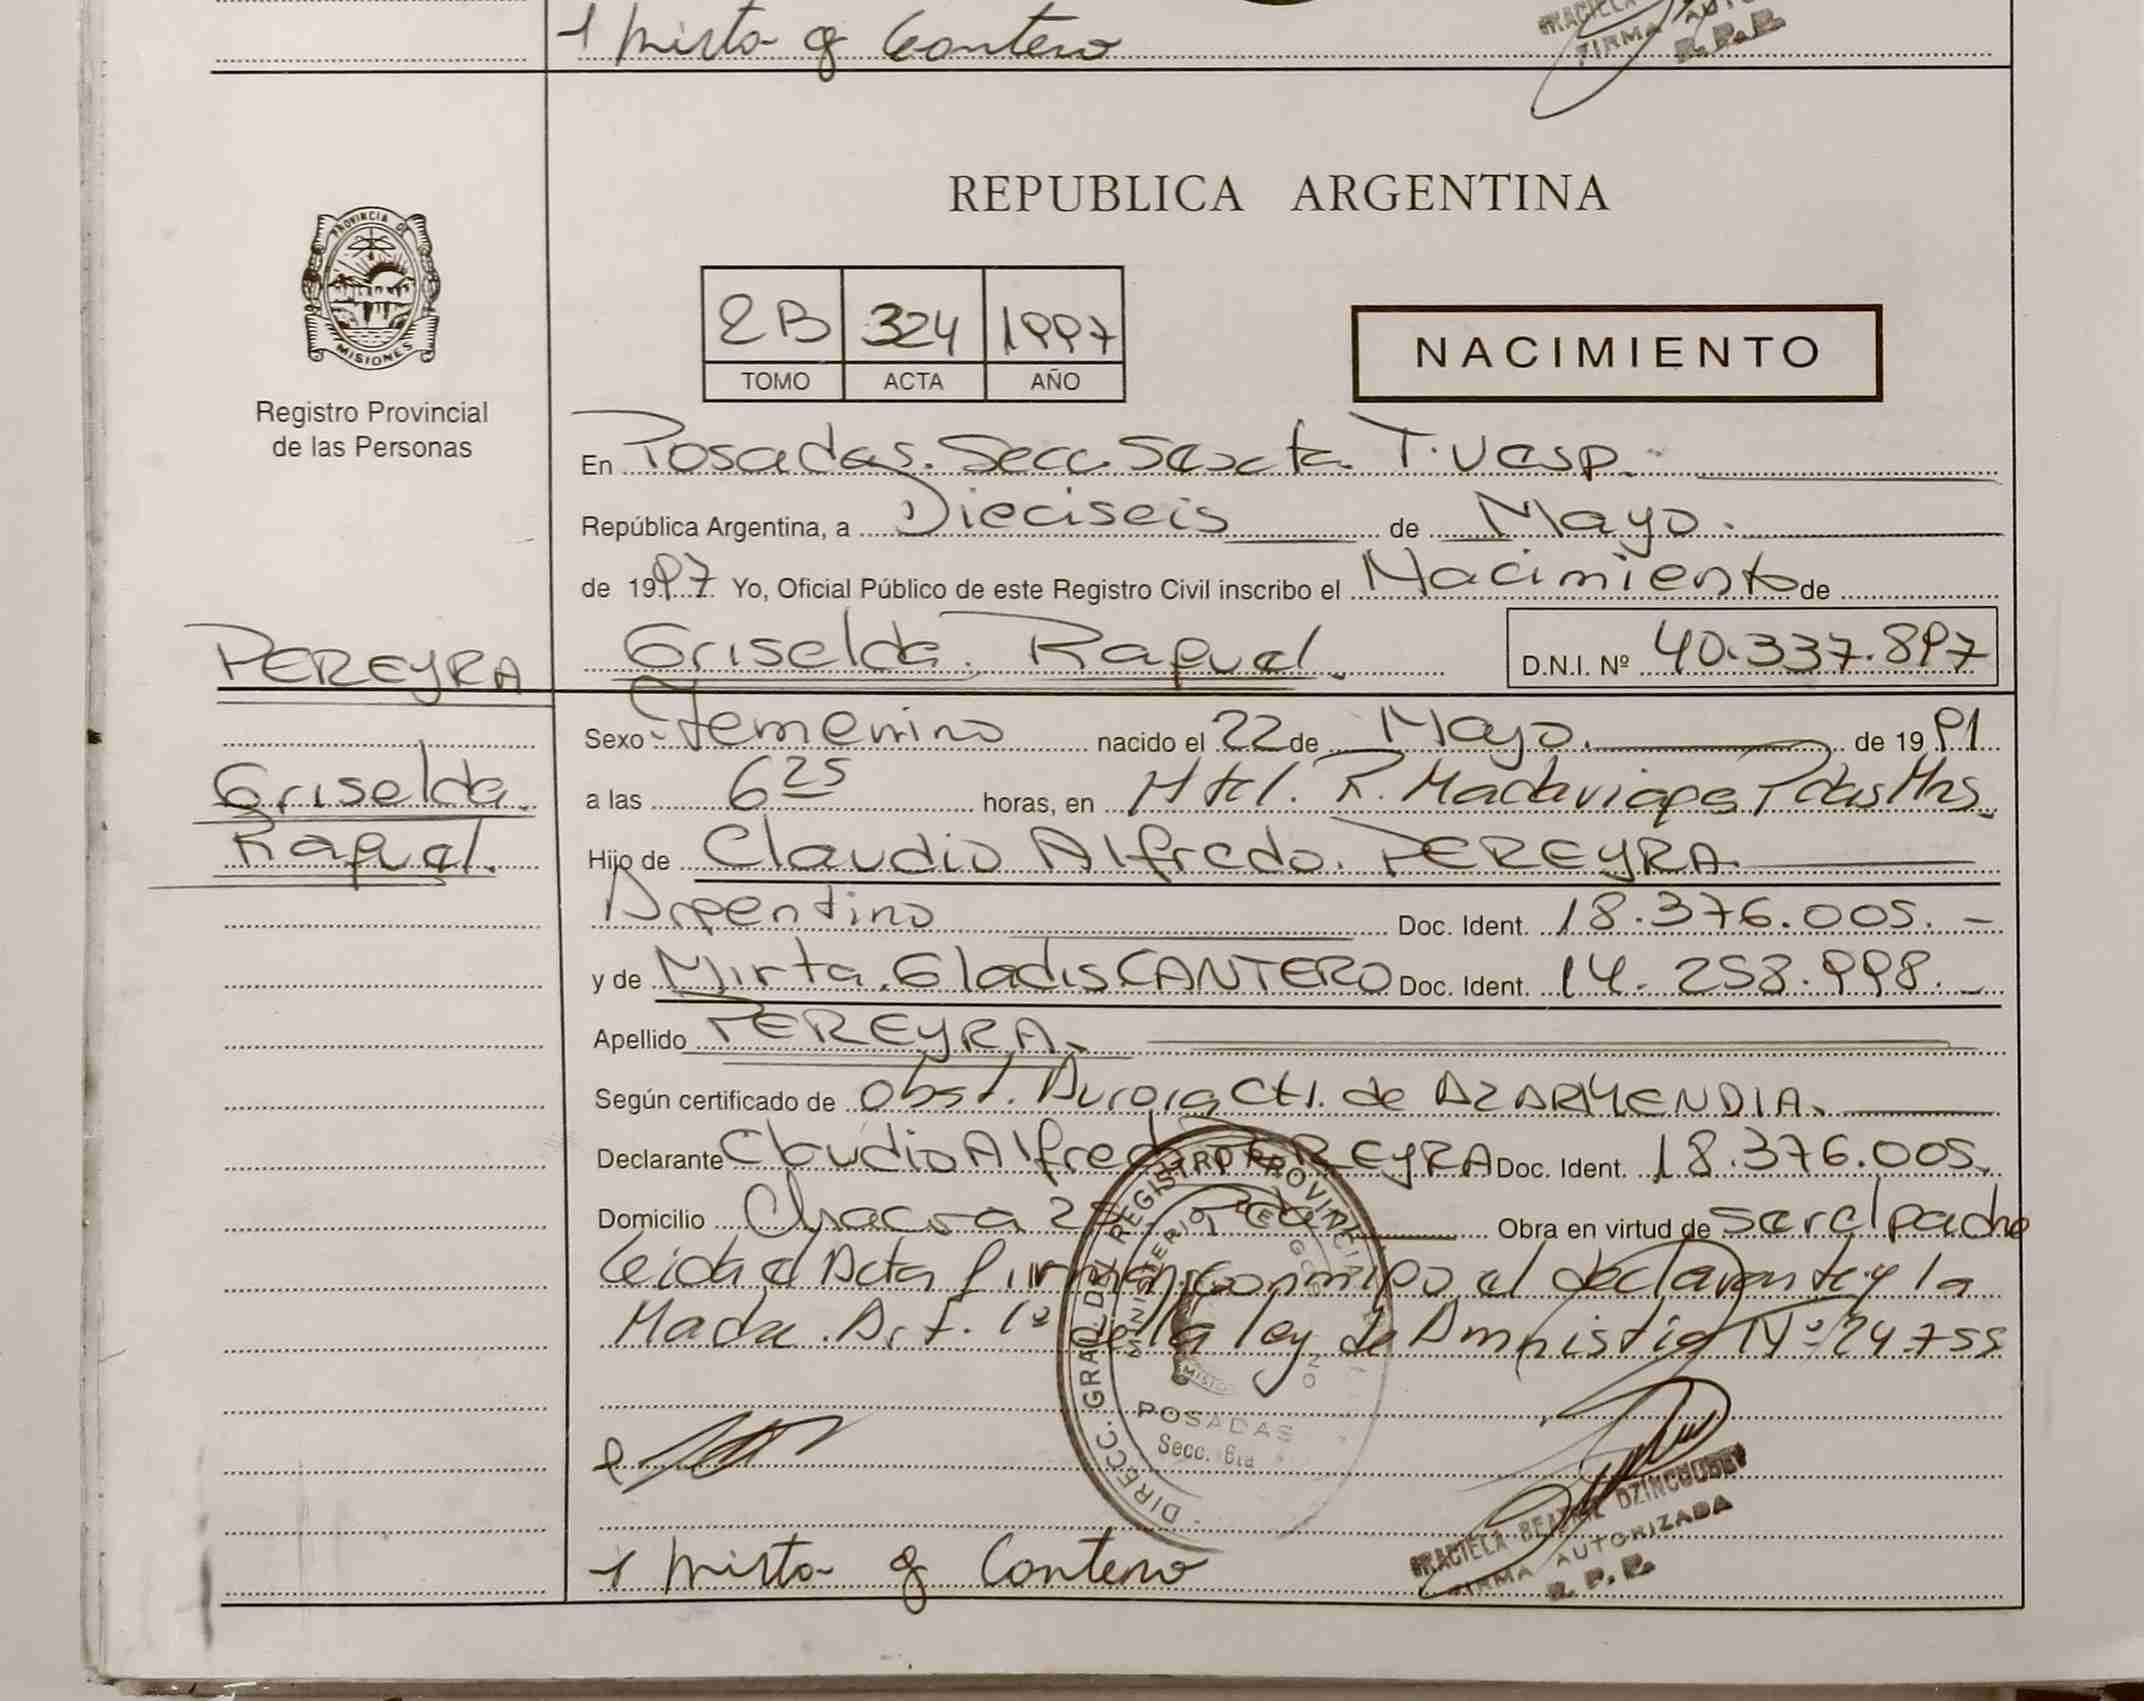 1 Mirta G Cantero
GRACIELA
FIRMA AUTO
R. P. P.
PROVINCIA DE
MISIONES
Registro Provincial
de las Personas
REPUBLICA ARGENTINA
2B 324 1997
TOMO ACTA AÑO
NACIMIENTO
En Posadas. Secc. Sexta T. Vesp.
República Argentina, a Dieciseis de Mayo.
de 1997 Yo, Oficial Público de este Registro Civil inscribo el Nacimiento de
PEREYRA
Griselda. Raquel. D.N.I. Nº 40.337.897
Griselda.
Raquel.
Sexo Femenino nacido el 22 de Mayo. de 1991
a las 6 25 horas, en Htal. R. Madariaga Pdas Mns.
Hijo de Claudio Alfredo. PEREYRA.
Argentino Doc. Ident. 18.376.005. -
y de Mirta. Gladis CANTERO Doc. Ident. 14.258.998. -
Apellido PEREYRA.
Según certificado de Obst. Aurora de AZARMENDIA.
Declarante Claudio Alfredo PEREYRA Doc. Ident. 18.376.005.
Domicilio Chacra Pdas Obra en virtud de ser el padre
Leida el Acta firman conmigo el declarante y la
Madre. Art. 1º de la ley de Amnistia Nº 24755
DIRECC. GRAL. DEL REGISTRO PROVINCIAL
MINISTERIO DE GOB
POSADAS
Secc. 6ta
1 Mirta G Cantero
GRACIELA BEATRIZ
FIRMA AUTORIZADA
R. P. P.